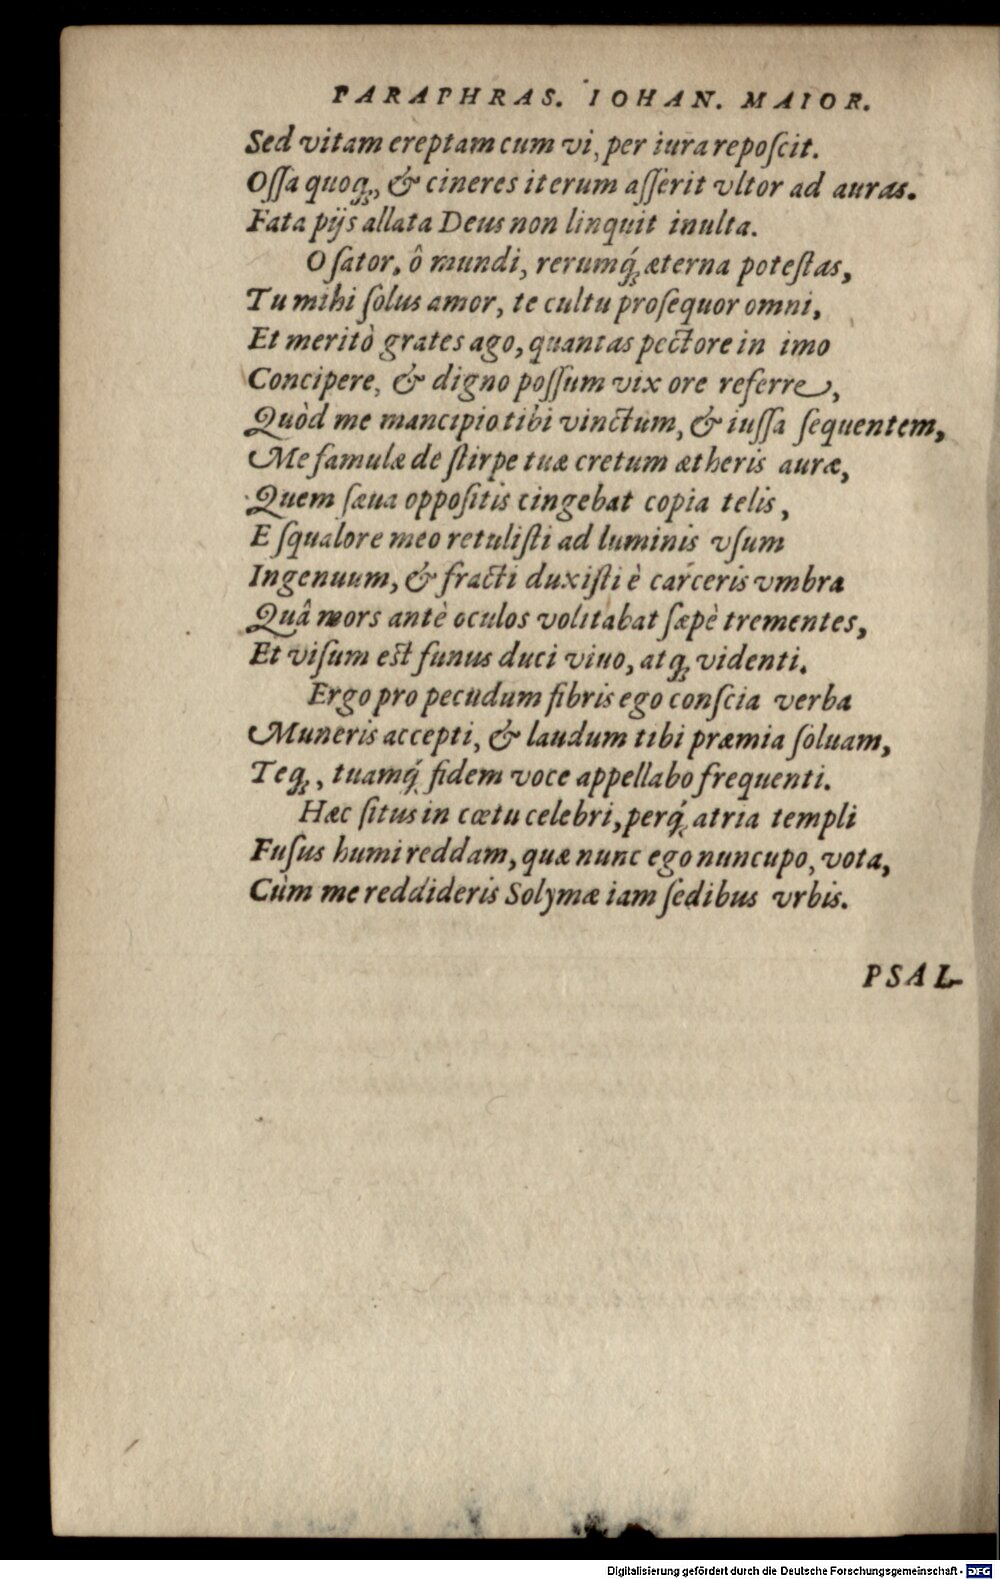 PARAPHRAS. IOHAN. MAIOR.
Sed vitam ereptam cum vi, per iura reposcit.
Ossa quoq;, & cineres iterum asserit vltor ad auras.
Fata pijs allata Deus non linquit inulta.
O sator, ô mundi, rerumq́; æterna potestas,
Tu mihi solus amor, te cultu prosequor omni,
Et meritò grates ago, quantas pectore in imo
Concipere, & digno possum vix ore referre,
Quòd me mancipio tibi vinctum, & iussa sequentem,
Me famulæ de stirpe tuæ cretum ætheris auræ,
Quem sæua oppositis cingebat copia telis,
E squalore meo retulisti ad luminis vsum
Ingenuum, & fracti duxisti è carceris vmbra
Quâ mors antè oculos volitabat sæpè trementes,
Et visum est funus duci viuo, atq; videnti.
Ergo pro pecudum fibris ego conscia verba
Muneris accepti, & laudum tibi præmia soluam,
Teq;, tuamq́; fidem voce appellabo frequenti.
Hæc situs in cœtu celebri, perq́; atria templi
Fusus humi reddam, quæ nunc ego nuncupo, vota,
Cùm me reddideris Solymæ iam sedibus vrbis.
PSAL-
Digitalisierung gefördert durch die Deutsche Forschungsgemeinschaft - DFG